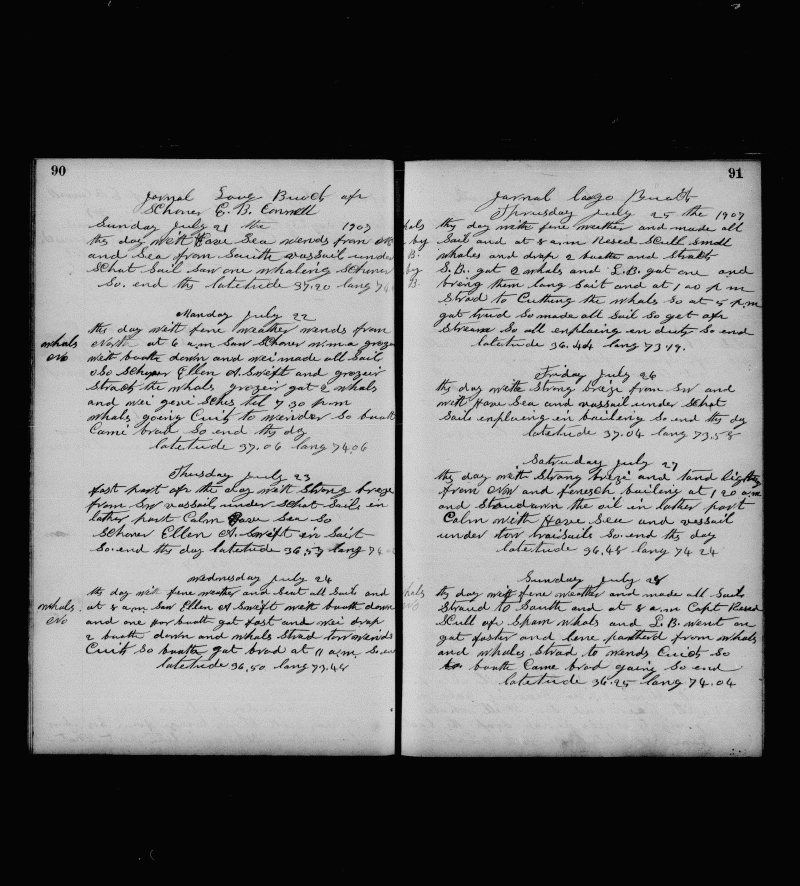 90
Jornal Loge Buook of
Schoner E. B. Conwell
Sunday July 21 the 1907
ths day with Have Sea wends from
and Sea from South vassail under
Schat Sail Saw one whaleing Schoner
So. end ths latetude 37.20 lang 74
Monday July 22
ths day with fene weather wends from
North at 6 a.m Saw Schoner wm a grozer
whals
No
with booth down and wei made all Sail
olso Schoner Ellen A. Swift and grozeir
Strach the whals grozeir gat 2 whals
and wei geve Sches tel 7 30 p.m
whals going Cuik to wender So booth
Came brod So end ths day
latetude 37.06 lang 74.06
Thusday July 23
fast part of the day with Strong breze
from Sw vassail under Schat Sails en
lather part Calm Have Sea So
Schoner Ellen A. Swift en Sait
So. end ths day latetude 36.57 lang 74
wednesday July 24
ths day wit fene weather and Seat all Sails and
whals
No
at 8 a.m. Saw Ellen A Swift with booth down
and one for booth gat fast and wei drap
2 booth down and whals Strad tow wends
Cuik So booth gat brod at 11 a.m. So en
latetude 36.50 lang 73.48
91
Jarnal Logo Buook
Thrusday July 25 the 1907
ths day with fene weather and made all
Sail and at 8 a.m Resed Scull Small
whales and drap 2 booth and Strath
by
B.
S.B. gat 2 whals and L.B. gat one and
by
B.
breng them lang Sait and at 1 00 p m
Strad to Cutteng the whals So at 5 p.m
gat trud So made all Sail So get of
Stream So all enplaeng en duty So end
latetude 36.44 lang 73.19.
Friday July 26
ths day with Strong brize from Sw and
with Have Sea and vassail under Schat
Sails enplaeng en baileng So end ths day
latetude 37.04 lang 73.58
Satruday July 27
ths day with Strong breze and tand lighteng
from NW and fenesch baileng at 1 20 a.m
and Staudawn the oil in lather part
Calm with Have Sea and vessail
under tow traisails So. end ths day
latetude 36.48 lang 74 24
Sunday July 28
ths day wit fene weather and made all Sails
Straud to South and at 8 a.m Capt Resed
Scull of Spam whals and L.B. went on
gat faster and lene partterd from whals
and whales Strad to wends Cuick So
booth Came brod going So end
latetude 36.25 lang 74.04